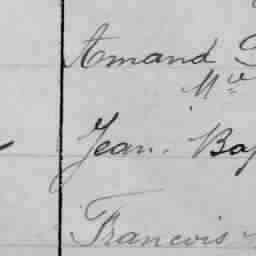 Amand
Mᵉ
Jean. Bap
Francois